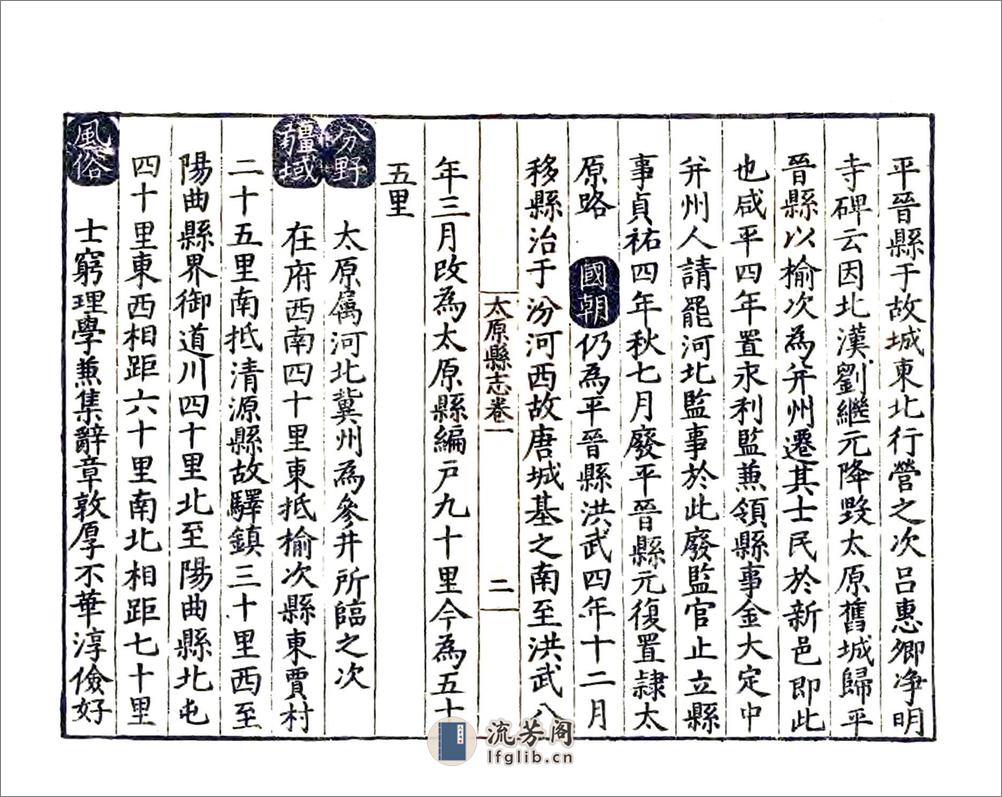 平晉縣于故城東北行營之次呂惠卿淨明
寺碑云因北漢劉繼元降毀太原舊城歸平
晉縣以榆次為并州遷其士民於新邑即此
也咸平四年置永利監兼領縣事金大定中
并州人請罷河北監事於此廢監官止立縣
事貞祐四年秋七月廢平晉縣元復置隷太
原路 國朝仍為平晉縣洪武四年十二月
移縣治于汾河西故唐城基之南至洪武八
太原縣志卷一 二
年三月改為太原縣編戶九十里今為五十
五里
分野 太原属河北冀州為參井所臨之次
疆域 在府西南四十里東抵榆次縣東賈村
二十五里南抵清源縣故驛鎮三十里西至
陽曲縣界御道川四十里北至陽曲縣北屯
四十里東西相距六十里南北相距七十里
風俗 士窮理學兼集辭章敦厚不華淳儉好
流芳阁
lfglib.cn